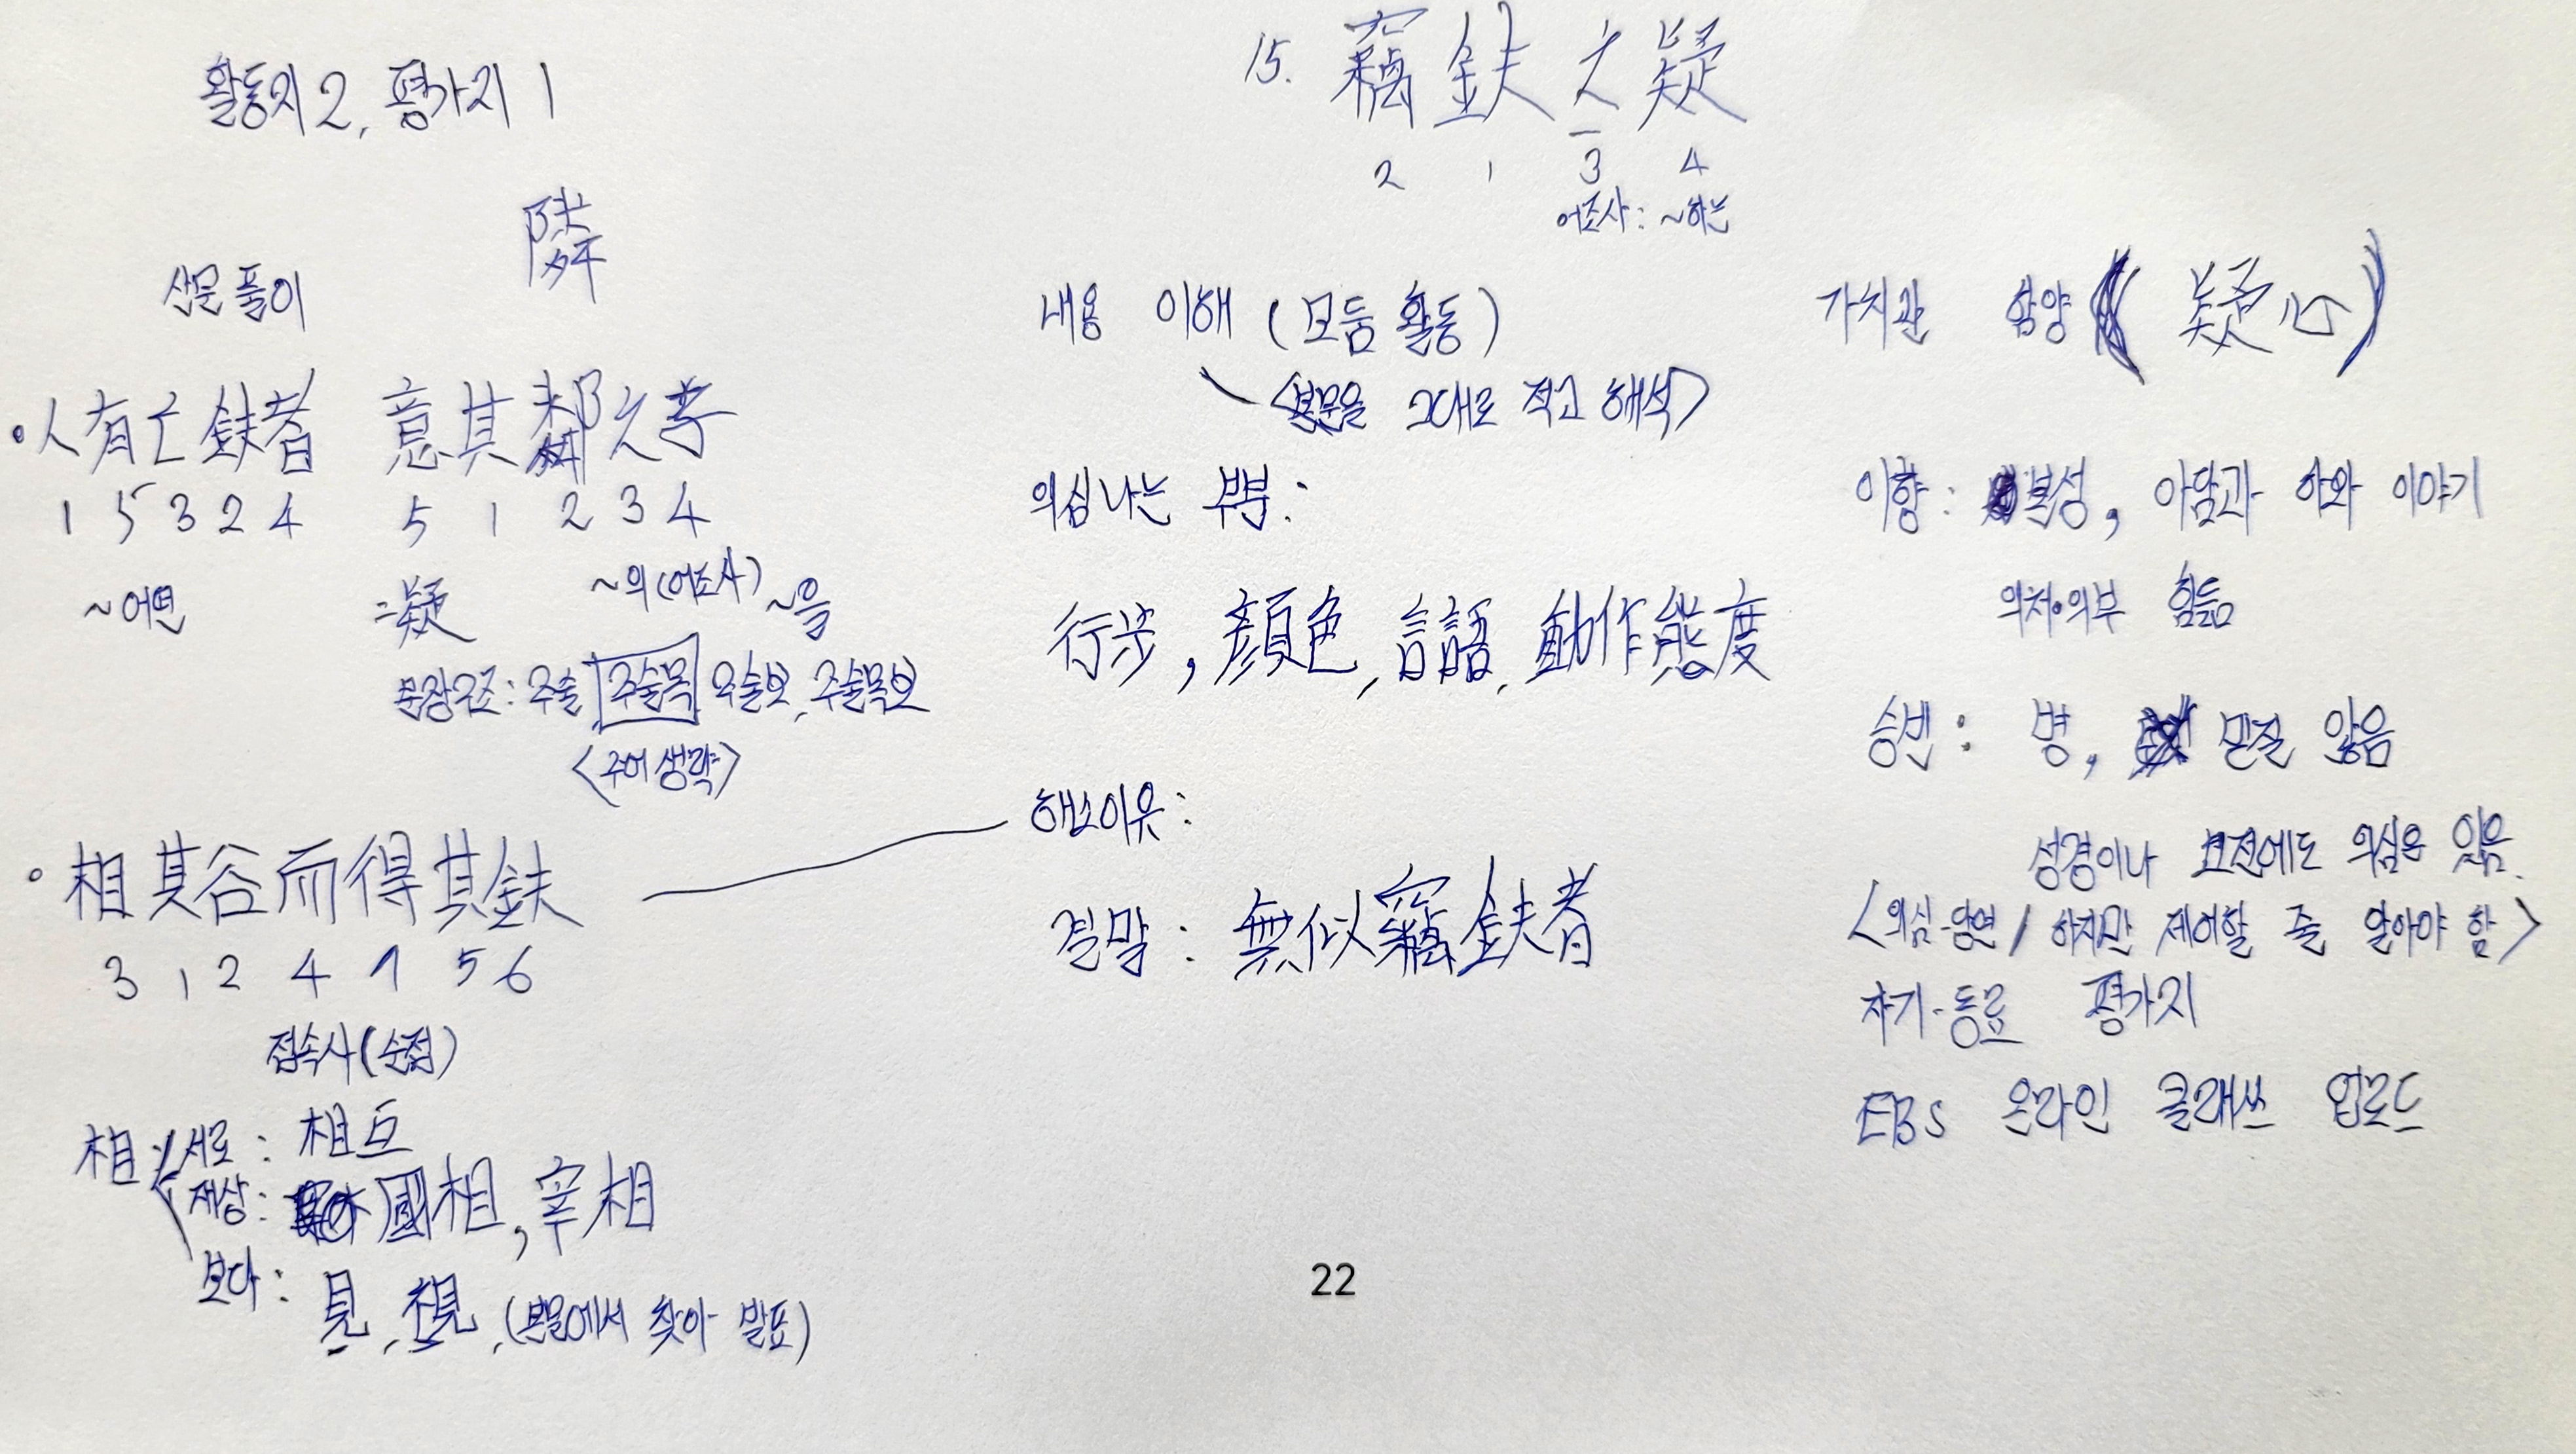 활동지 2, 평가지 1
15. 竊鈇之疑
2 1 3 4
어조사: ~하는
隣
산문 풀이
·人有亡鈇者 意其鄰之子
1 5 3 2 4 5 1 2 3 4
~어떤 =疑 ~의(어조사) ~을
문장구조: 주술 주술목 주술보, 주술목보
<주어 생략>
·相其谷而得其鈇
3 1 2 4 7 5 6
접속사(순접)
相 서로: 相互
재상: 國相, 宰相
보다: 見, 視, (본문에서 찾아 발표)
내용 이해 (모둠 활동)
<본문을 그대로 적고 해석>
의심나는 부분:
行步, 顔色, 言語, 動作態度
해소이유:
결말: 無似竊鈇者
가치관 함양 (疑心)
이향: 본성, 아담과 하와 이야기
의처·의부 힘듦
승빈: 병, 믿질 않음
성경이나 고전에도 의심은 있음.
<의심-당연 / 하지만 제어할 줄 알아야 함>
자기-동료 평가지
EBS 온라인 클래쓰 업로드
22